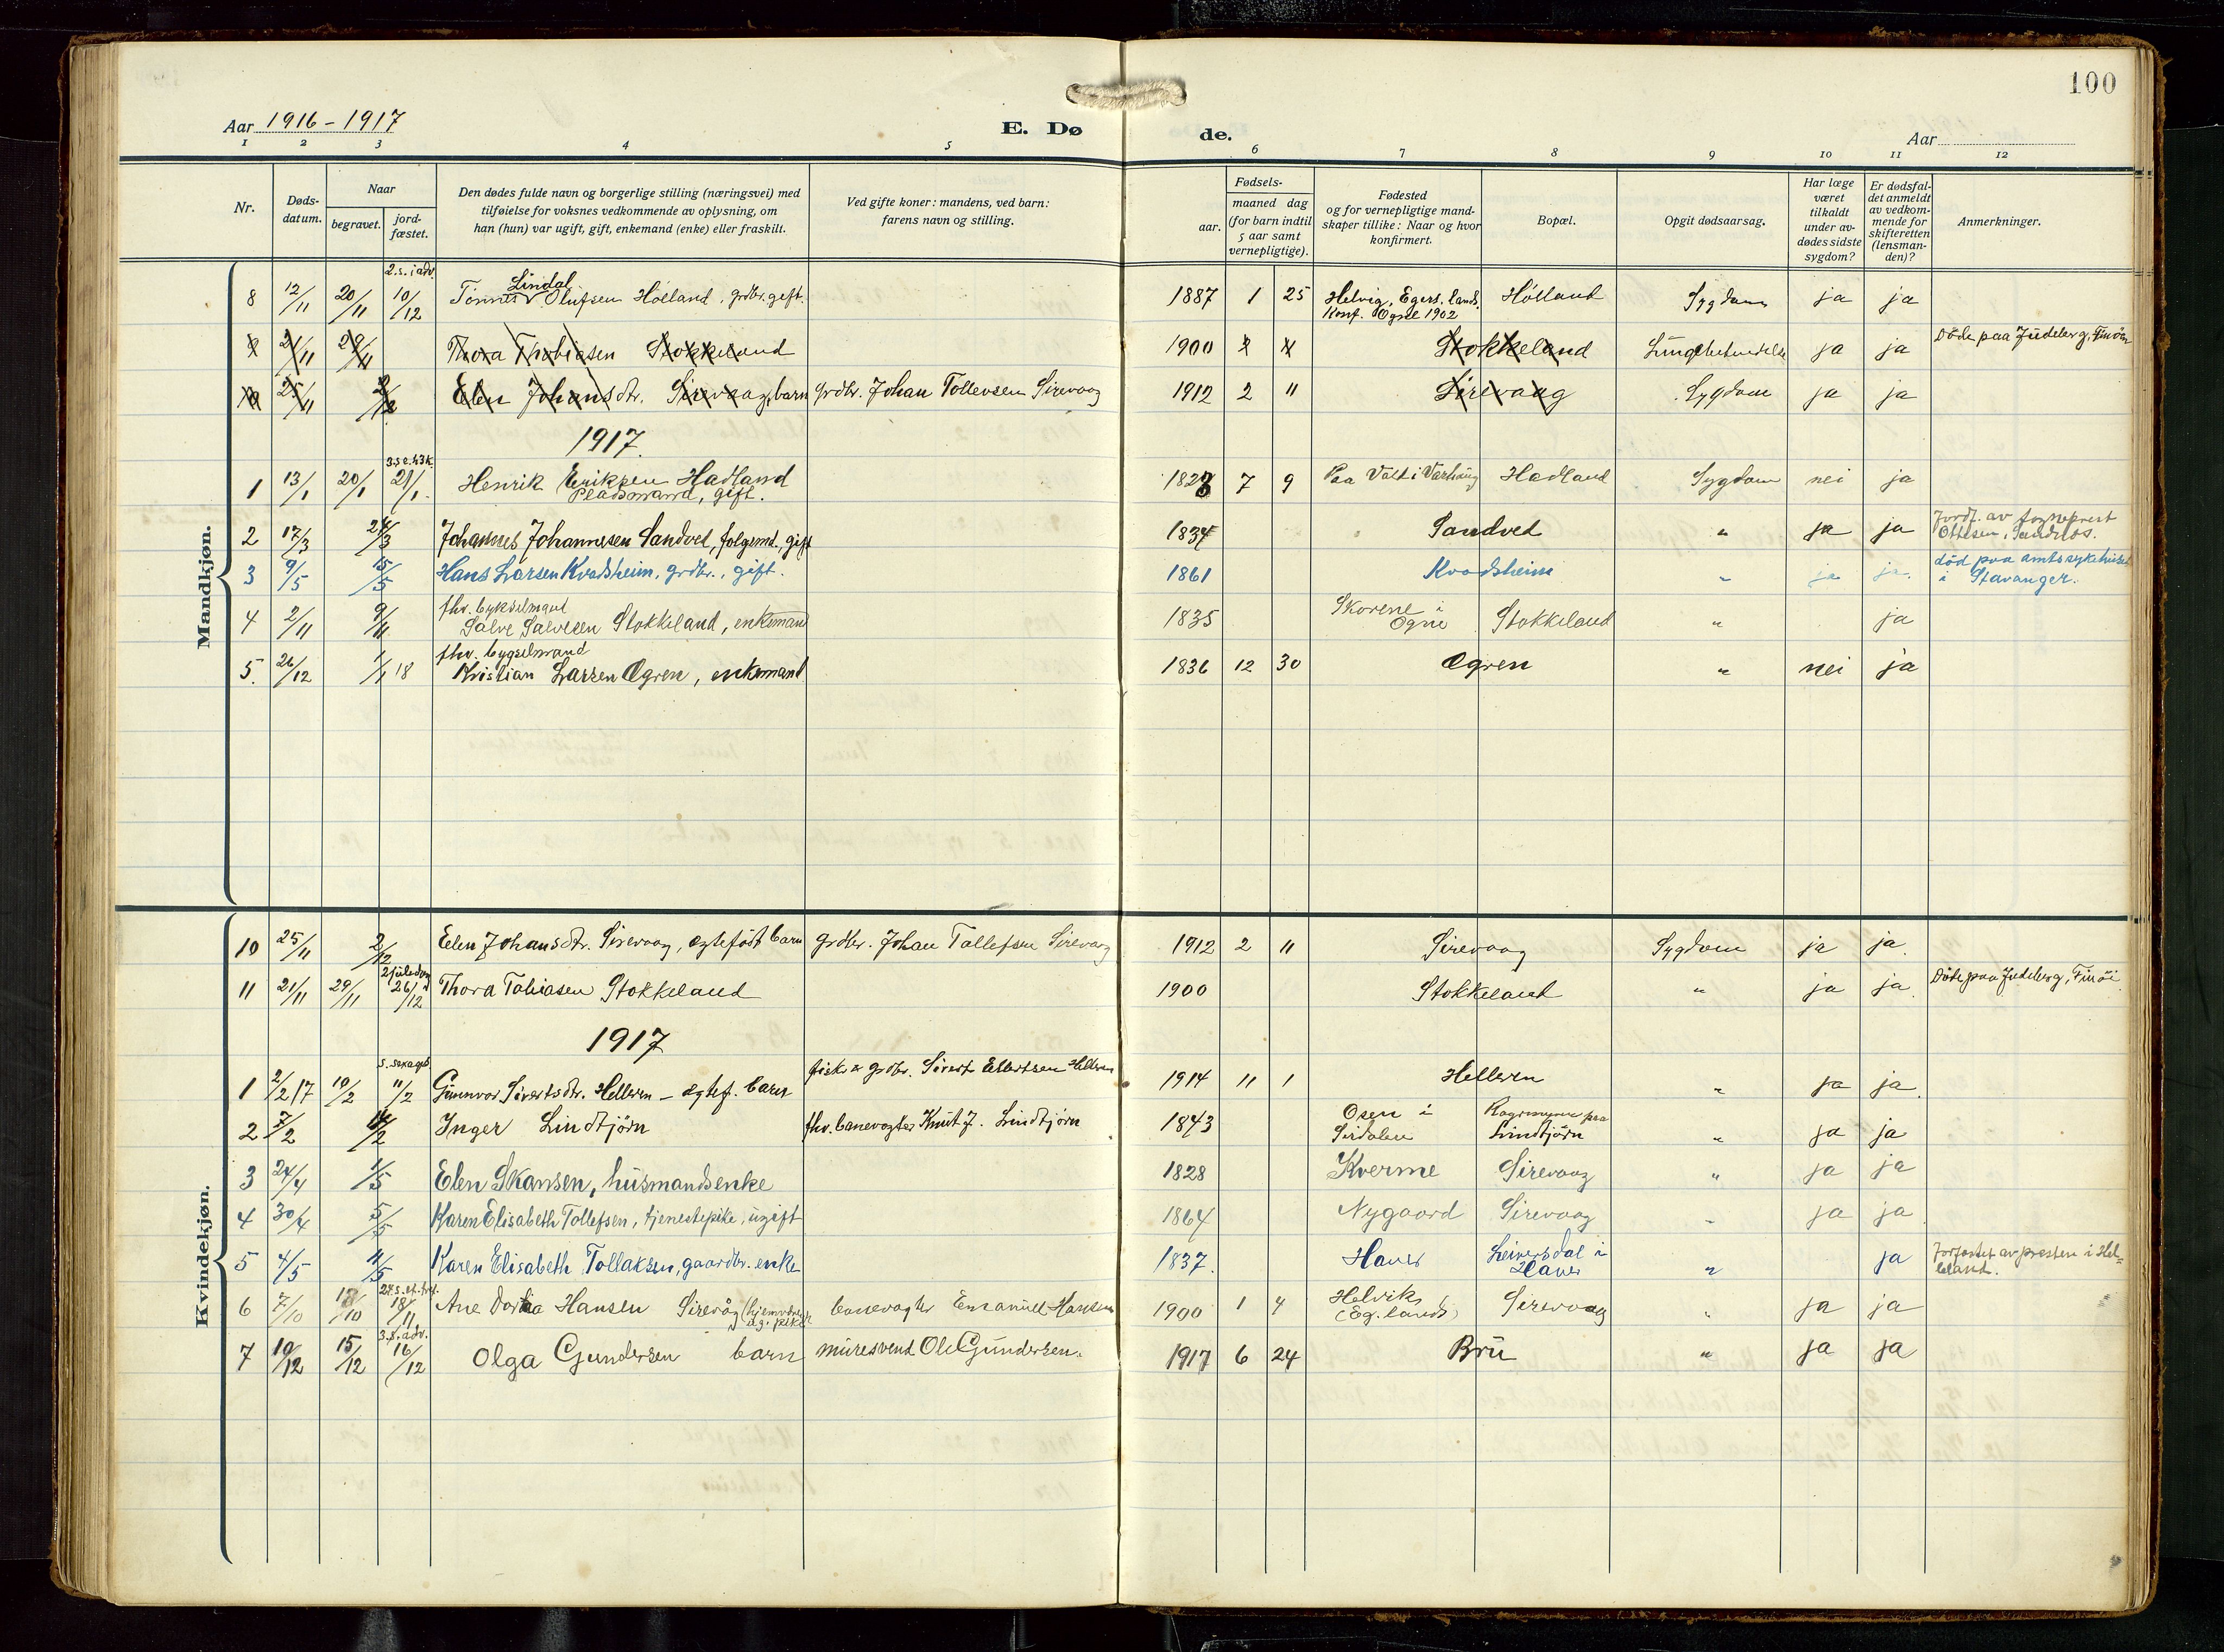 100
Aar 1916 - 1917
E. Dø de.
Aar
1 2 3 4 5 6 7 8 9 10 11 12
Nr.
Døds-
datum.
Naar
begravet.
jord-
fæstet.
Den dødes fulde navn og borgerlige stilling (næringsvei) med
tilføielse for voksnes vedkommende av oplysning, om
han (hun) var ugift, gift, enkemand (enke) eller fraskilt.
Ved gifte koner: mandens, ved barn:
farens navn og stilling.
Fødsels-
aar. maaned dag
(for barn indtil
5 aar samt
vernepligtige).
Fødested
og for vernepligtige mand-
skaper tillike: Naar og hvor
konfirmert.
Bopæl.
Opgit dødsaarsag.
Har læge
været
tilkaldt
under av-
dødes sidste
sygdom?
Er dødsfal-
det anmeldt
av vedkom-
mende for
skifteretten
(lensman-
den)?
Anmerkninger.
Mandkjøn.
2. s. i adv.
8 12/11 20/11 10/12 Tønnes Lindal Olufsen Hölland, grdbr. gift. 1887 1 25 Helvig, Egers. lands. Konf. Ogne 1902 Hölland Sygdom ja ja
9 21/11 29/11 Thora Thobiasen Stokkeland 1900 Stokkeland ja ja Döde paa Judeberg, Finöi
10 25/11 2/12 Elen Johansdtr. Sirevaag, barn grdbr. Johan Tollevsen Sirevaag 1912 2 11 Sirevaag Sygdom ja ja
1917.
3. s. e. h3k.
1 13/1 20/1 21/1 Henrik Eriksen Hadland Pladsmand, gift. 1828 7 9 Paa i Varhaug Hadland Sygdom nei ja
2 17/3 24/3 Johannes Johannesen Sandved, folgemd., gift 1834 Sandved " ja ja Jordf. av sogneprest Ottesen, Sandnes.
3 9/5 15/5 Hans Larsen Kvadsheim, grdbr., gift. 1861 Kvadsheim " ja ja. död paa amtssykehuset i Stavanger.
4 2/11 9/11 fhv. bykselmand Salve Salvesen Stokkeland, enkemand 1835 Skorene i Ogne Stokkeland " ja
5. 26/12 1/1 18 fhv. bygselmand Kristian Larsen Ogren, enkemand 1836 12 30 Ogren " nei ja
Kvindekjøn.
10 25/11 2/12 Elen Johansdtr. Sirevaag, egtefödt barn grdbr. Johan Tollefsen Sirevaag 1912 2 11 Sirevaag Sygdom ja ja.
2 juledag
11 21/11 29/11 26/12 Thora Tobiasen Stokkeland 1900 Stokkeland " ja ja. Döde paa Judeberg, Finöi
1917
S. sexages.
1 2/2 17 10/2 11/2 Gunnvor Sivertsdtr. Helleren - egtef. barn fisker grdbr. Sivert Ellertsen Helleren 1914 11 1 Helleren " ja ja.
2 7/2 14/2 Inger Lindtjörn fhv. banevogter Knut J. Lindtjörn 1843 Osen i Sirdalen paa Lindtjörn " ja ja
3 24/4 1/5 Elen Skansen, husmandsenke 1828 Kverme Sirevaag " ja ja
4 30/4 5/5 Karen Elisabeth Tollefsen, tjenestepike, ugift 1864 Nygaard Sirevaag " ja ja
5 4/5 11/5 Karen Elisabeth Tollaksen, gaardbr. enke 1837. Haver Leiversdal i Haver " ja Jorfæstet av presten i Helleland.
6 7/10 13/10 18/11 Ane Dortea Hansen Sirevåg banevogter Emanuel Hansen 1900 1 4 Helvik (Eg. lands) Sirevaag " ja ja
3. s. i adv.
7 10/12 15/12 16/12 Olga Gundersen barn muresvend Ole Gundersen. 1917 6 24 Bru " ja ja